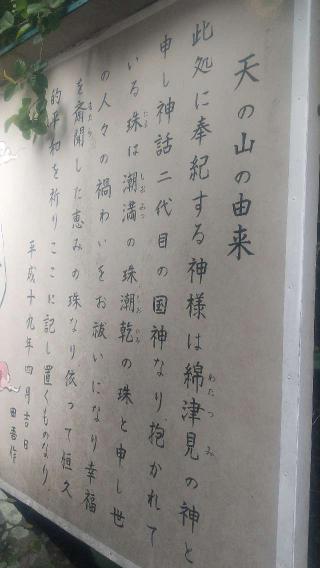 天の山の由来
此処に奉紀する神様は綿津見の神と
申し神話二代目の国神なり抱かれて
いる珠は潮満の珠潮乾の珠と申し世
の人々の禍わいをお祓いになり幸福
を齎開した恵みの珠なり依って恒久
的平和を祈りここに記し置くものなり
平成十九年四月吉日
田吾作